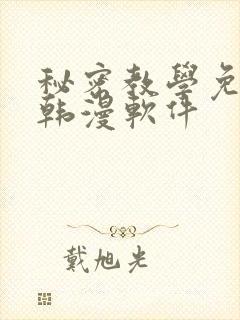 秘密教學免
韩漫軟件
戴旭光